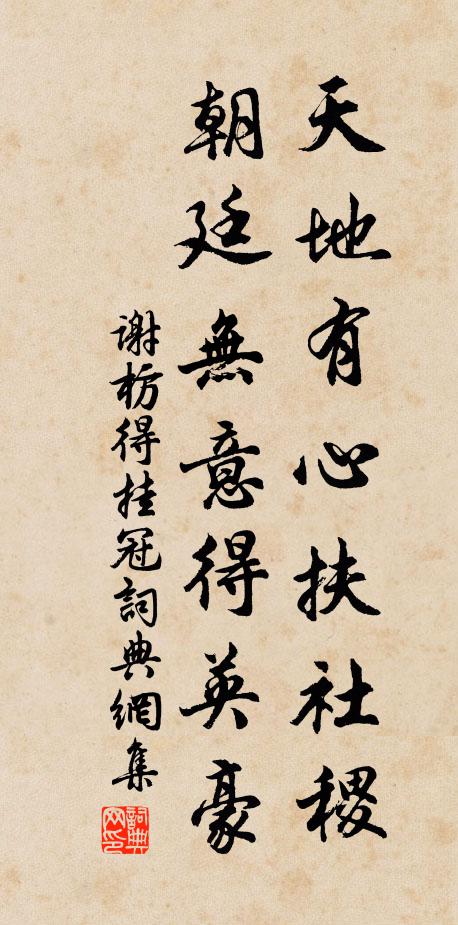 天地有心扶社稷
朝廷無意得英豪
謝枋得挂冠詞典網集
詞典網印